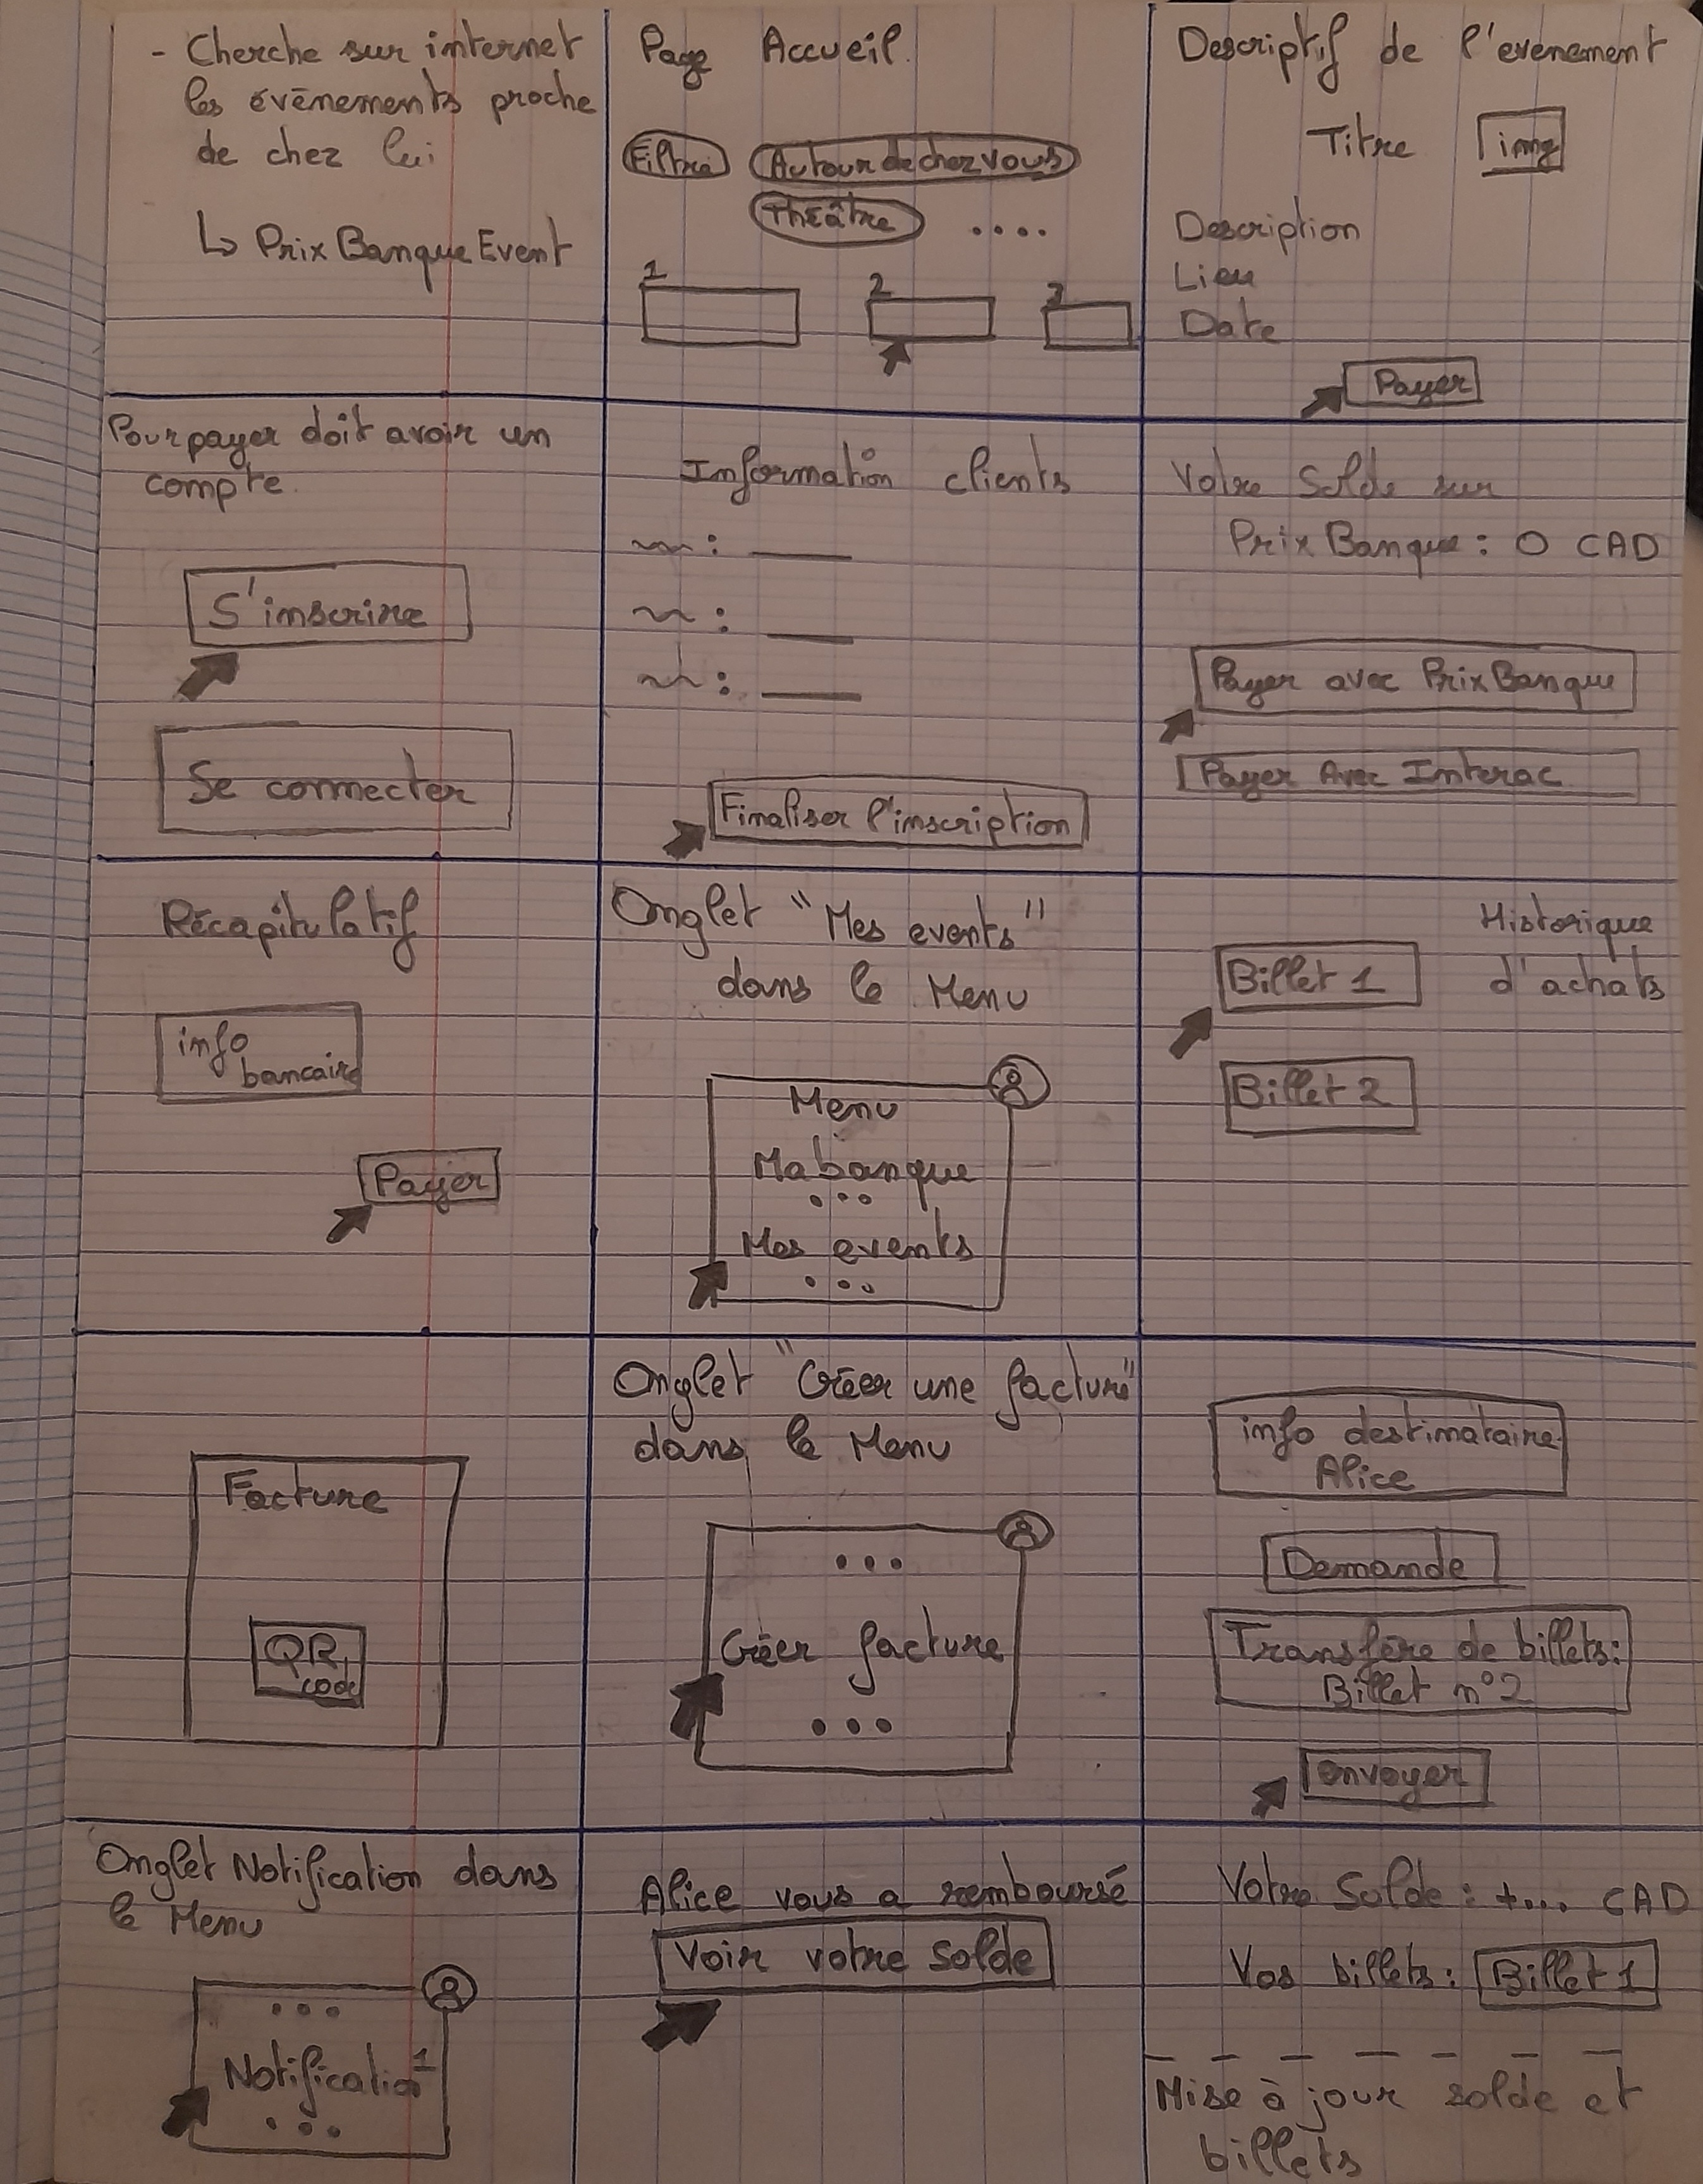 - Cherche sur internet
les évènements proche
de chez lui
↳ PrixBanqueEvent
Page Accueil.
Filtre Autour de chez vous
Théâtre ....
1 2 3
Descriptif de l'evenement
Titre img
Description
Lieu
Date
Payer
Pour payer doit avoir un
compte.
S'inscrire
Se connecter
Information clients
:
:
:
Finaliser l'inscription
Votre Solde sur
PrixBanque : 0 CAD
Payer avec PrixBanque
Payer Avec Interac
Récapitulatif
info
bancaire
Payer
Onglet "Mes events"
dans le Menu
Menu
Ma banque
...
Mes events
...
Historique
d'achats
Billet 1
Billet 2
Facture
QR
code
Onglet "Créer une facture"
dans le Menu
...
Créer facture
...
info destinataire
Alice
Demande
Transfère de billets:
Billet n°2
envoyer
Onglet Notification dans
le Menu
...
Notification 1
...
Alice vous a remboursé
Voir votre solde
Votre Solde : +... CAD
Vos billets : Billet 1
Mise à jour solde et
billets